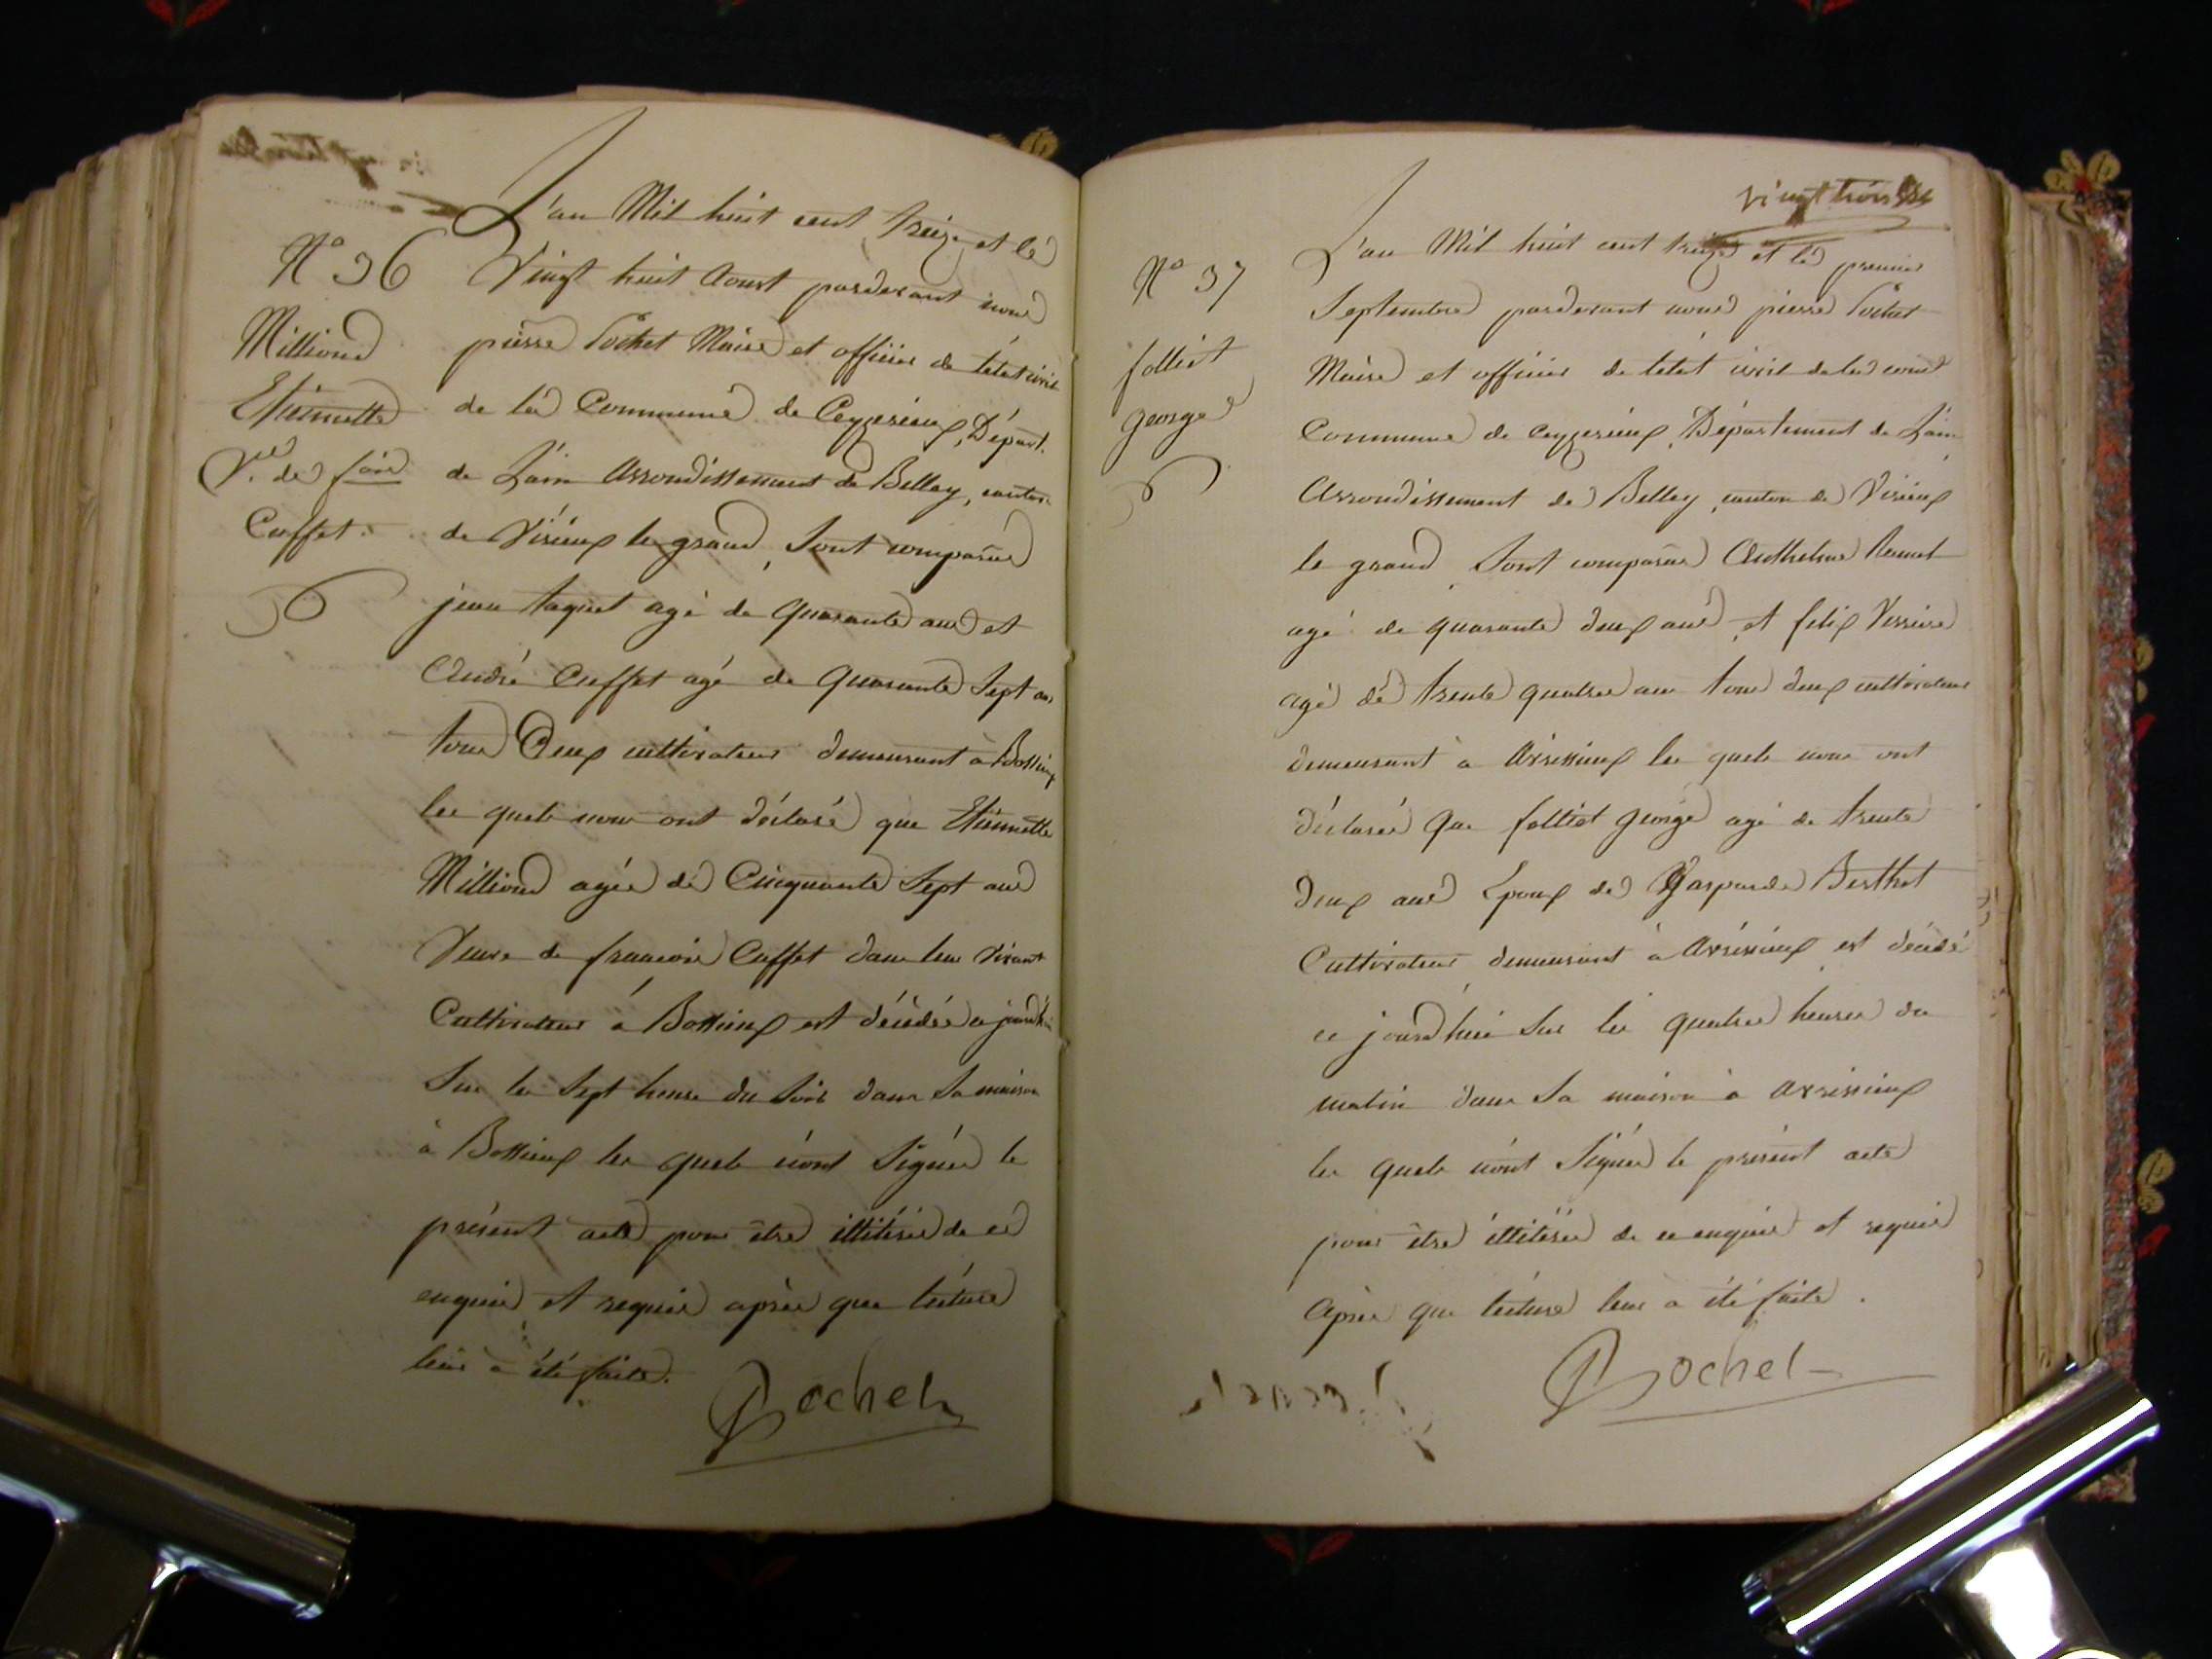 L'an Mil huit cent treize et le
N° 36
Vingt huit Aoust pardevant nous
Millions
pierre Pochet Maire et officier de létat civil
Etiennette
de la Commune de Ceyzerieux, Départ.
Ve. de fois
de L'ain Arrondissement de Belley, canton
Cuffet.
de Virieux le grand, Sont comparus
jean taquet agé de quarante ans et
André Cuffet agé de quarante Sept ans
tous Deux cultivateurs demeurant à Bossieux
les quels nous ont déclaré que Etiennette
Millions agée de Cinquante Sept ans
Veuve de francois Cuffet dans leur vivant
Cultivateur à Bossieux est décédée ce jourd'hui
Sur les Sept heures du Soir dans Sa maison
à Bossieux les quels n'ont Signés le
présent acte pour être illitérés de ce
enquis et requis après que lecture
leur a été faite.
Pochet
vingt trois
L'an Mil huit cent treize et le premier
N° 37
Septembre pardevant nous pierre Pochet
folliet
Maire et officier de létat civil de la
george
Commune de ceyzerieux, Département de L'ain
Arrondissement de Belley, canton de Virieux
le grand, Sont comparus Anthelme
agé de quarante deux ans, et felix
agé de trente quatre ans tous deux cultivateurs
demeurant à Avrissieux les quels nous ont
déclarés que folliet george agé de trente
Deux ans Epoux de Gasparde Berthet
Cultivateur demeurant à Avrissieux est décédé
ce jourd'hui Sur les quatres heures du
matin dans Sa maison à Avrissieux
les quels n'ont Signés le présent acte
pour être illitérés de ce enquis et requis
Après que lecture leur a été faite.
Pochet